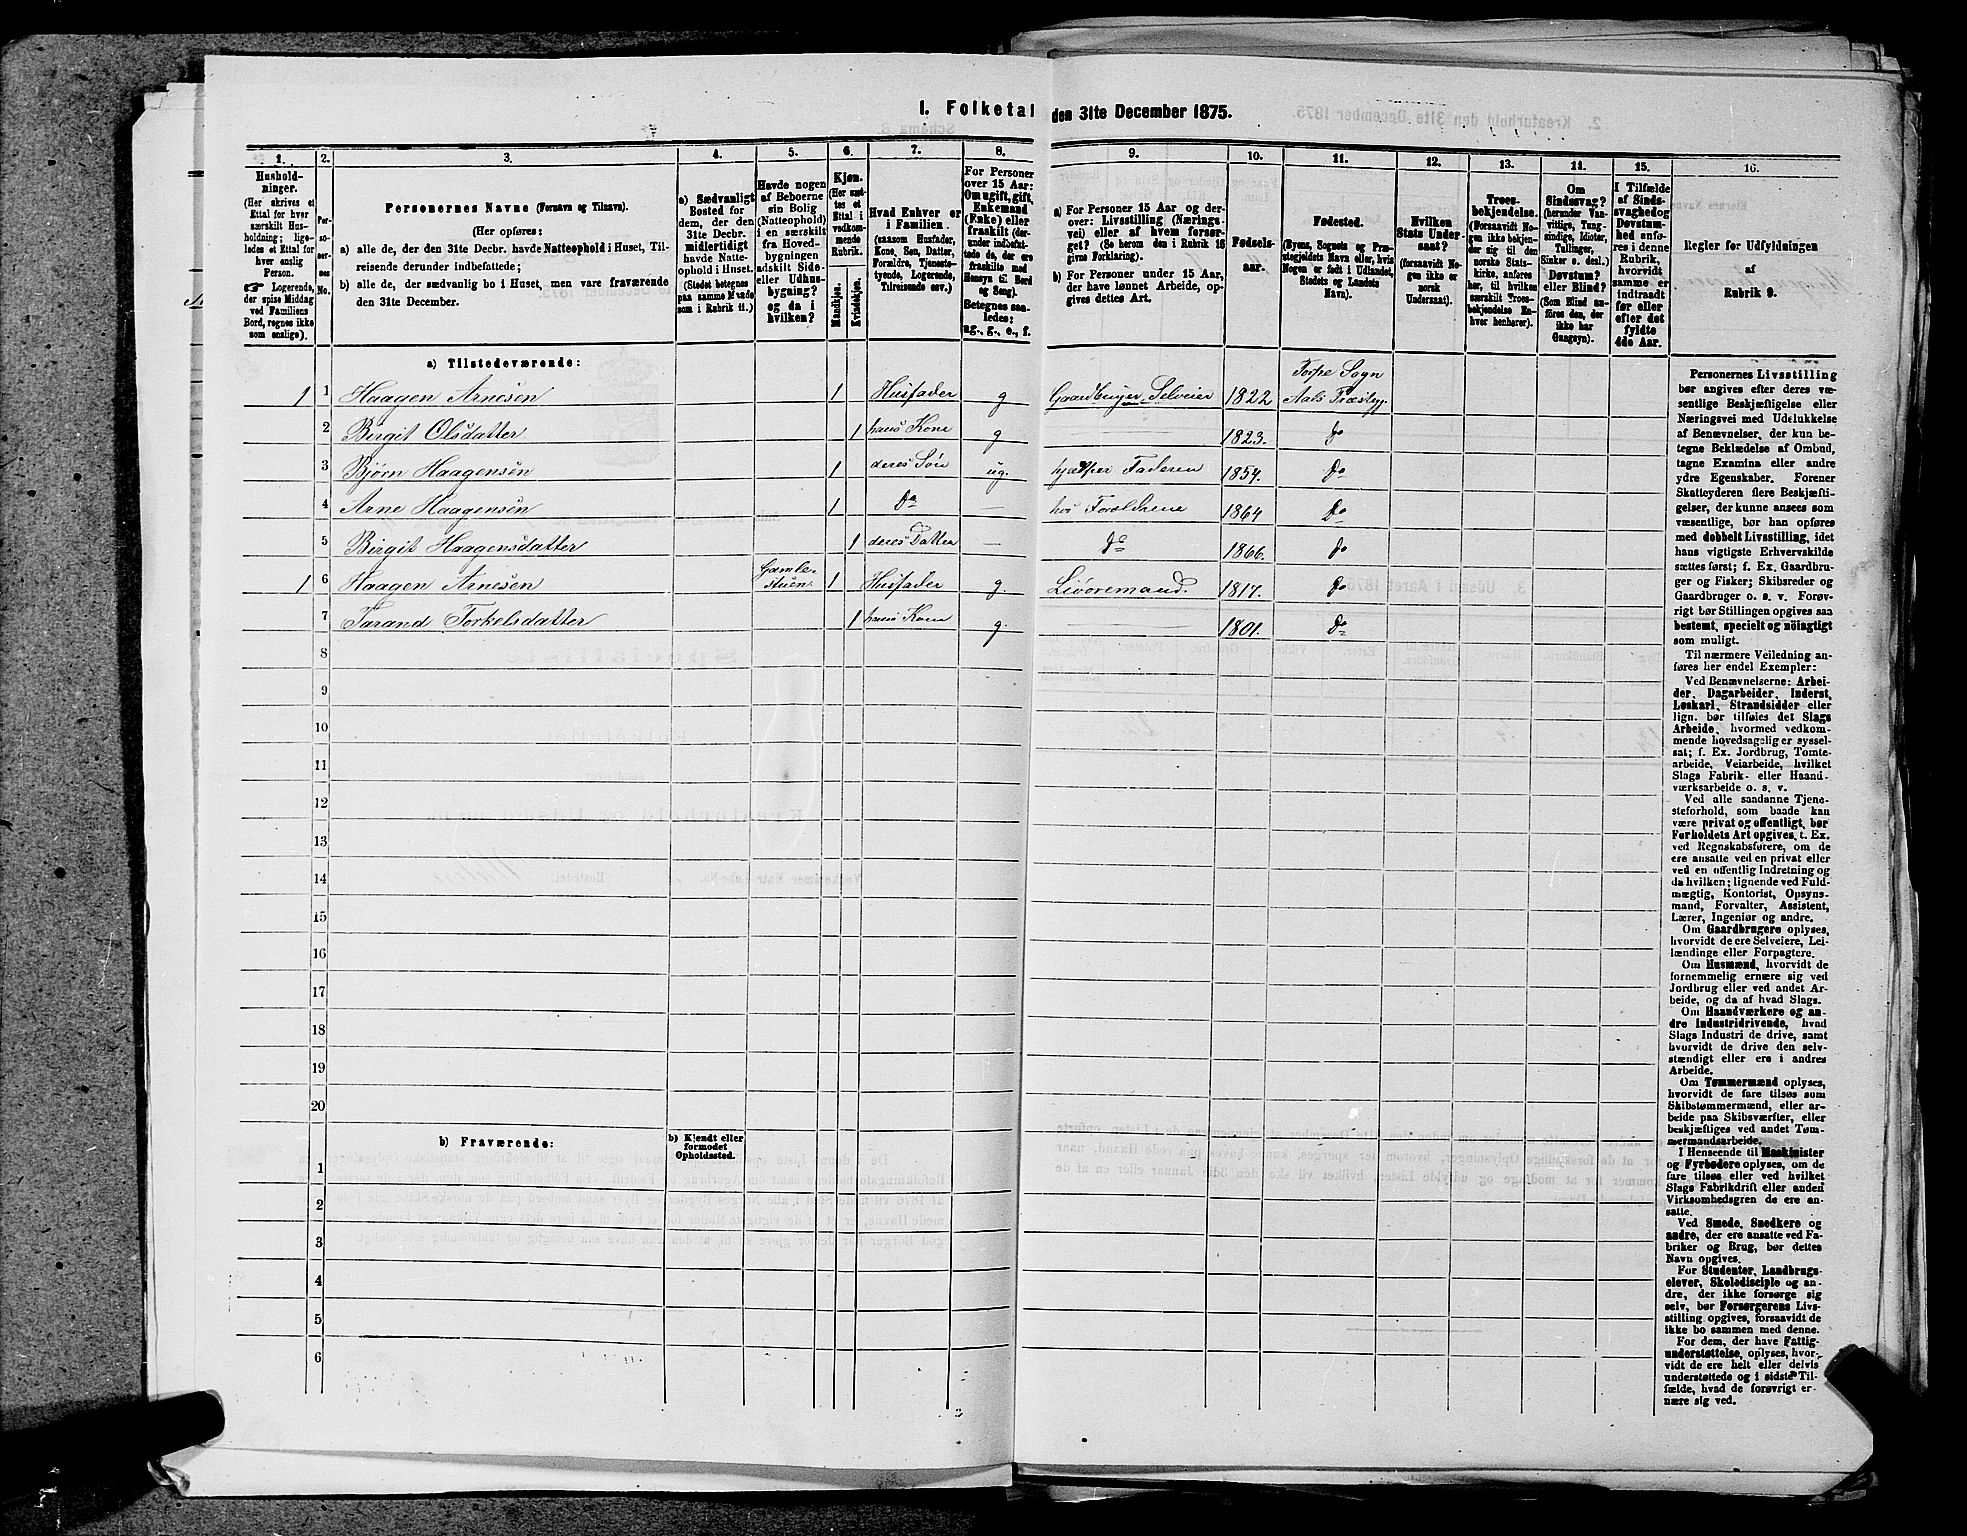 I. Folketal den 31te December 1875.
1. 2. 3. 4. 5. 6. 7. 8. 9. 10. 11. 12. 13. 14. 15. 16.
Husholdninger.
(Her skrives et
Ettal for hver
særskilt Husholdning;
ligeledes et Ettal for
hver enslig
Person.
☞ Logerende,
der spise Middag
ved Familiens
Bord, regnes ikke
som enslige).
Personernes No.
Personernes Navne (Fornavn og Tilnavn).
(Her opføres:
a) alle de, der den 31te Decbr. havde Natteophold i Huset, Tilreisende derunder indbefattede;
b) alle de, der sædvanlig bo i Huset, men vare fraværende
den 31te December.
a) Sædvanligt
Bosted for
dem, der den
31te Decbr.
midlertidigt
havde Natteophold i Huset.
(Stedet betegnes
paa samme Maade
som i Rubrik 11.)
Havde nogen
af Beboerne
sin Bolig
(Natteophold)
i en særskilt
fra Hovedbygningen
adskilt Side- eller Udhusbygning?
og da i
hvilken?
Kjøn.
(Her sættes et
Ettal i
vedkommende
Rubrik.
Mandkjøn.
Kvindekjøn.
Hvad Enhver er
i Familien.
(saasom Husfader,
Kone, Søn, Datter,
Forældre, Tjenestetyende, Logerende,
Tilreisende osv.)
For Personer
over 15 Aar:
Om ugift, gift,
Enkemand
(Enke) eller
fraskilt (derunder indbefattede de, der
ere fraskilte med
Hensyn til Bord
og Seng).
Betegnes saaledes:
ug., g., e., f.
a) For Personer 15 Aar og derover: Livsstilling (Næringsvei) eller af hvem forsørget? (Se herom den i Rubrik 16
givne Forklaring).
b) For Personer under 15 Aar,
der have lønnet Arbeide, opgives dettes Art.
Fødselsaar.
Fødested.
(Byens, Sognets og Præstegjeldets Navn eller, hvis
Nogen er født i Udlandet,
Stedets og Landets
Navn).
Hvilken
Stats Undersaat?
(forsaavidt Nogen ikke er
norsk
Undersaat).
Troesbekjendelse.
(Forsaavidt Nogen ikke bekjender sig til den
norske Statskirke, anføres
her, til hvilken
særskilt Troesbekjendelse Enhver henhører).
Om
Sindssvag?
(herunder Vanvittige, Tungsindige, Idioter,
Tullinger,
Sinker o. desl.)
Døvstum?
eller Blind?
(Som Blind anføres den, der
ikke har
Gangsyn).
I Tilfælde
af Sindssvaghed og
Døvstumhed anføres i denne
Rubrik,
hvorvidt
samme er
indtraadt
før eller
efter det
fyldte
4de Aar.
Regler for Udfyldningen
af
Rubrik 9.
a) Tilstedeværende:
Torpe Sogn
1 1 Haagen Arnesen 1 Husfader g Gaardbruger, Selveier 1822 Aals Præstegj.
2 Birgit Olsdatter 1 hans Kone g 1823. Do
3 Bjørn Haagensen 1 deres Søn ug. hjælper Faderen 1854. Do
4 Arne Haagensen 1 Do — hos Forældrene 1864 Do
5 Birgit Haagensdatter 1 deres Datter — Do 1866. Do
1 6 Haagen Arnesen Gamlestuen 1 Husfader g. Livøremand. 1817. Do
7 Tarand Torkelsdatter 1 hans Kone g. 1801. Do
8
9
10
11
12
13
14
15
16
17
18
19
20
b) Fraværende:
b) Kjendt eller
formodet
Opholdssted.
1
2
3
4
5
6
Personernes Livsstilling
bør angives efter deres væsentlige Beskjæftigelse eller
Næringsvei med Udelukkelse
af Benævnelser, der kun betegne Beklædelse af Ombud,
tagne Examina eller andre
ydre Egenskaber. Forener
Skatteyderen flere Beskjæftigelser, der kunne ansees som
væsentlige, bør han opføres
med dobbelt Livsstilling, idet
hans vigtigste Erhvervskilde
sættes først; f. Ex. Gaardbruger og Fisker; Skibsreder og
Gaardbruger o. s. v. Forøvrigt bør Stillingen opgives saa
bestemt, specielt og nöiagtigt
som muligt.
Til nærmere Veiledning anføres her endel Exempler:
Ved Benævnelserne: Arbeider, Dagarbeider, Inderst,
Løskarl, Strandsidder eller
lign. bør tilføies det Slags
Arbeide, hvormed vedkommende hovedsagelig er sysselsat; f. Ex. Jordbrug, Tomtearbeide, Veiarbeide, hvilket
Slags Fabrik- eller Haandværksarbeide o. s. v.
Ved alle saadanne Tjenesteforhold, som baade kan
være privat og offentligt, bør
Forholdets Art opgives, t. Ex.
ved Regnskabsførere, om de
ere ansatte ved en privat eller
ved en offentlig Indretning og
da hvilken; lignende ved Fuldmægtig, Kontorist, Opsynsmand, Forvalter, Assistent,
Lærer, Ingeniør og andre.
Om Gaardbrugere oplyses,
hvorvidt de ere Selveiere, Leilændinge eller Forpagtere.
Om Husmænd, hvorvidt de
fornemmelig ernære sig ved
Jordbrug eller ved andet Arbeide, og da af hvad Slags.
Om Haandværkere og andre Industridrivende, hvad
Slags Industri de drive, samt
hvorvidt de drive den selvstændigt eller ere i andres
Arbeide.
Om Tømmermænd oplyses,
hvorvidt de fare tilsøs som
Skibstømmermænd, eller arbeide paa Skibsværfter, eller
beskjæftiges ved andet Tømmermandsarbeide.
I Henseende til Maskinister
og Fyrbødere oplyses, om de
fare tilsøs eller ved hvilket
Slags Fabrikdrift eller anden
Virksomhedsgren de ere ansatte.
Ved Smede, Snedkere og
andre, der ere ansatte ved Fabriker og Brug, bør dettes
Navn opgives.
For Studenter, Landbrugselever, Skoledisciple og andre, der ikke forsørge sig
selv, bør Forsørgerens Livsstilling opgives, forsaavidt de
ikke bo sammen med denne.
For dem, der have Fattigunderstøttelse, oplyses, hvorvidt de ere helt eller delvis
understøttede og i sidste Tilfælde, hvad de forøvrigt ernære sig ved.